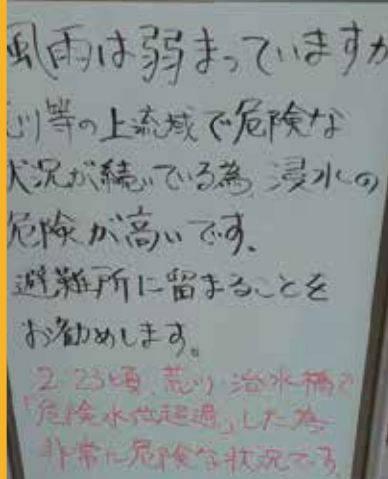 風雨は弱まっていますが
川等の上流域で危険な
状況が続いている為、浸水の
危険が高いです。
避難所に留まることを
お勧めします。
2:23頃、荒川 治水橋で
「危険水位超過」した為
非常に危険な状況です